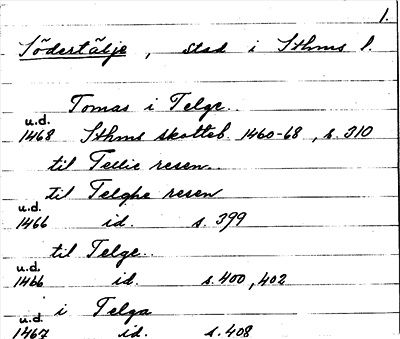 1.
Södertälje, stad i Sthms l.
Tomas i Telge.
u.d.
1468 Sthms skotteb. 1460-68, s. 310
til Tellie resen
til Telghe resen
u.d.
1466 id. s. 399
til Telge.
u.d.
1466 id. s. 400, 402
i Telga
u.d.
1467 id. s. 408